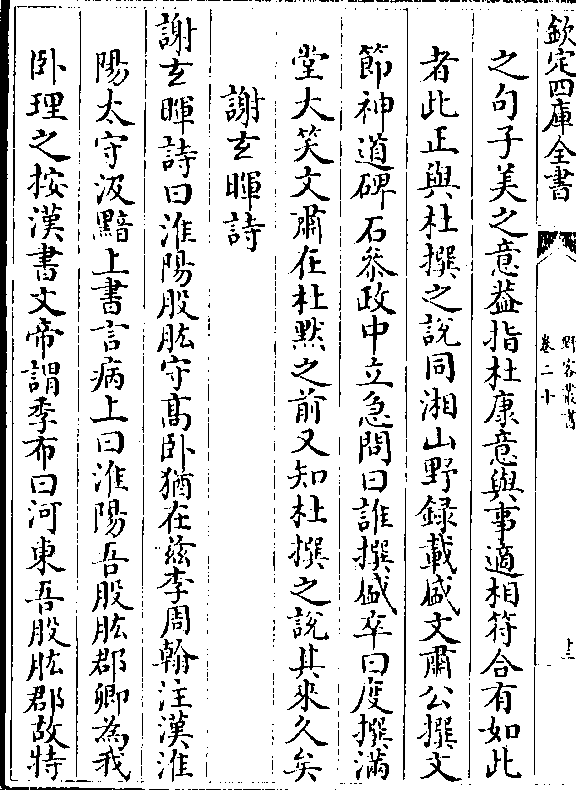 欽定四庫全書
野客叢書
卷二十
十二
之句子美之意葢指杜康意與事適相符合有如此
者此正與杜撰之說同湘山野録載盛文肅公撰文
節神道碑石叅政中立急問曰誰撰盛卒曰度撰滿
堂大笑文肅在杜默之前又知杜撰之說其來久矣
謝玄暉詩
謝玄暉詩曰淮陽股肱守髙卧猶在兹李周翰注漢淮
陽太守汲黯上書言病上曰淮陽吾股肱郡卿為我
卧理之按漢書文帝謂季布曰河東吾股肱郡故特